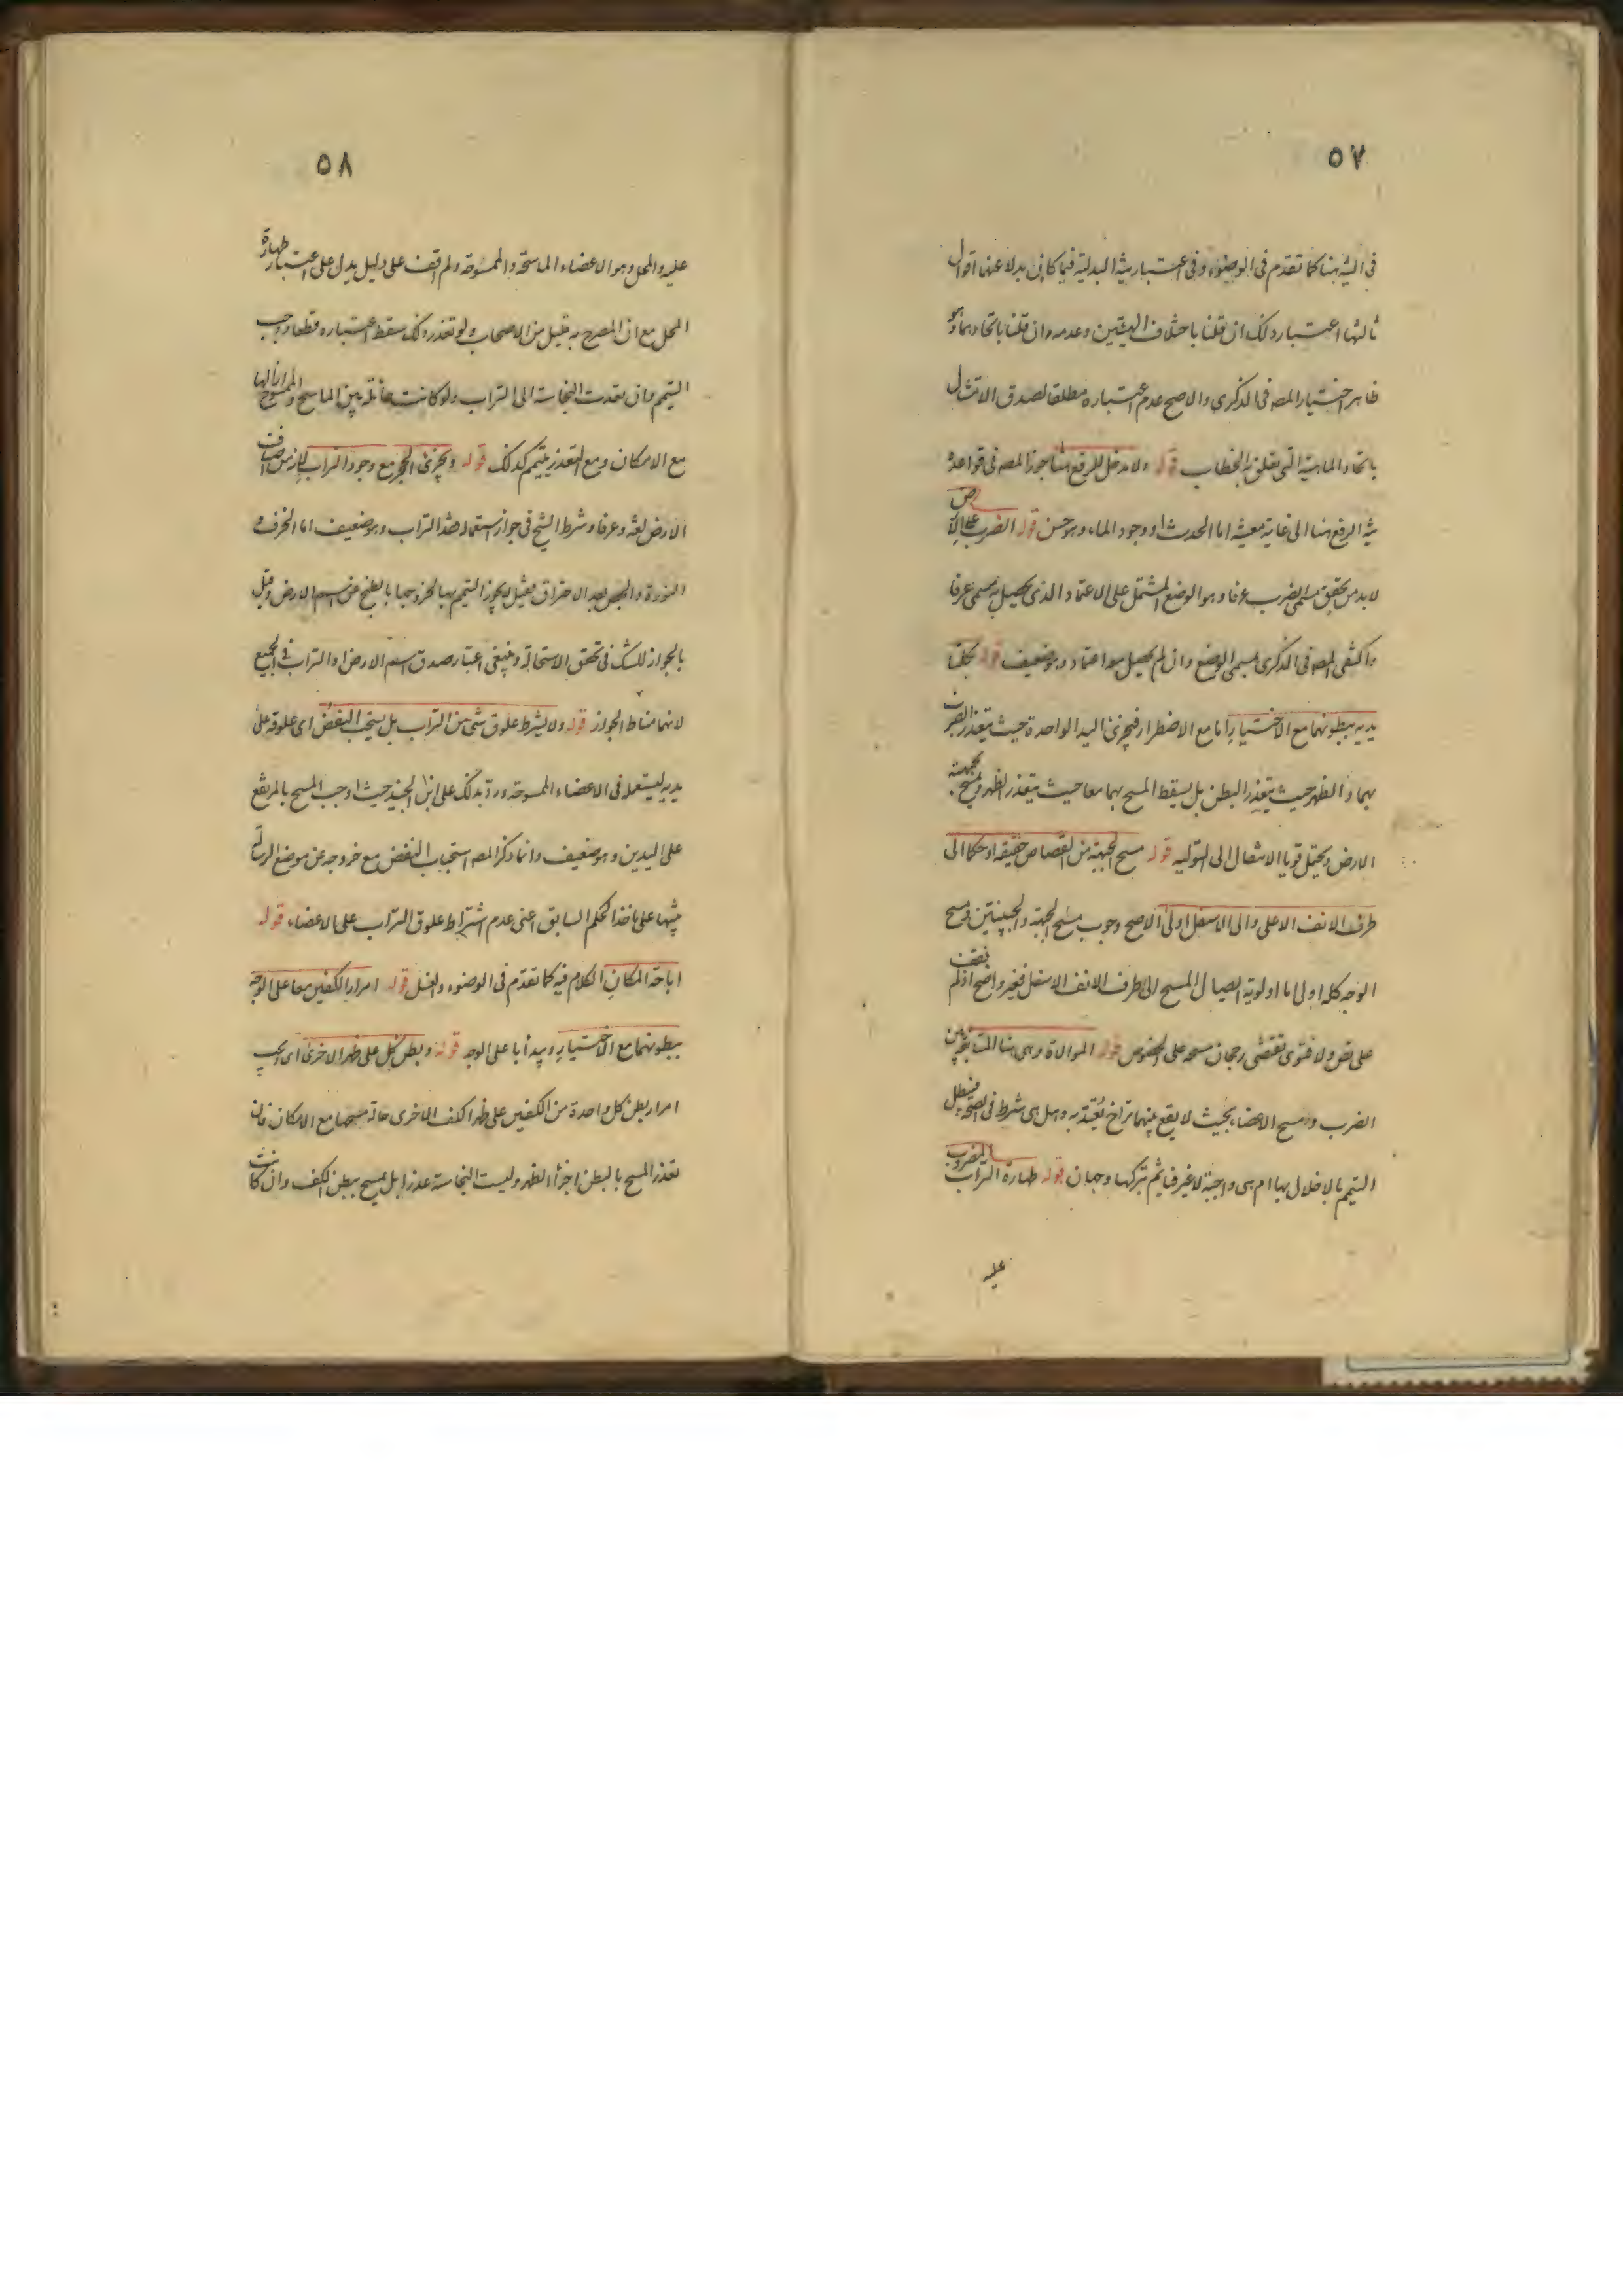 ٥٧
في النية هنا كما تقدم في الوضوء وفي اعتبار نية البدلية فيما كان بدلا عنها اقوال
ثالثها اعتبار ذلك ان قلنا باختلاف الهيئتين وعدمه وان قلنا باتحادهما وهو
ظاهر اختيار المصه في الذكرى والاصح عدم اعتباره مطلقا لصدق الامتثال
باتحاد الماهية التي تعلق بها الخطاب قوله ولا مدخل للرفع هنا جوز المصه في قواعده
نية الرفع هنا الى غاية معينة اما الحدث او وجود الماء وهو حسن قوله الضرب على الارض
لا بد من تحقق مسمى الضرب عرفا وهو الوضع المشتمل على الاعتماد الذي يحصل به مسمى عرفا
واكتفى المصه في الذكرى بمسمى الوضع وان لم يحصل معه اعتماد وهو ضعيف قوله بكلتا
يديه ببطونهما مع الاختيار اما مع الاضطرار فيجزئ اليد الواحدة حيث يتعذر الضرب
بهما والظهر حيث يتعذر البطن بل يسقط المسح بهما معا حيث يتعذر الظهر ويمسح بجبهته
الارض ويحتمل قويا الانتقال الى التولية قوله مسح الجبهة من القصاص حقيقة او حكما الى
طرف الانف الاعلى والى الاسفل اولى الاصح وجوب مسح الجبهة والجبينين ومسح
الوجه كله اولى اما اولوية ايصال المسح الى طرف الانف الاسفل فغير واضح اذ لم نقف
على نص ولا فتوى تقتضى رجحان مسحه على الخصوص قوله الموالاة وهي هنا المتابعة بين
الضرب ومسح الاعضاء بحيث لا يقع بينهما تراخ يُعتد به وهل هي شرط في الصحة فيبطل
التيمم بالاخلال بها ام هي واجبة لا غير فياثم بتركها وجهان قوله طهارة التراب المضروب
عليه
٥٨
عليه والمحل وهو الاعضاء الماسحة والممسوحة ولم اقف على دليل يدل على اعتبار طهارة
المحل مع ان المصرح به قليل من الاصحاب ولو تعذر ذلك سقط اعتباره قطعا ووجب
التيمم وان تعدت النجاسة الى التراب ولو كانت حائلة بين الماسح والممسوح ازالها
مع الامكان ومع التعذر يتيمم كذلك قوله ويجزئ الحجر مع وجود التراب لانه من اصناف
الارض لغة وعرفا وشرط الشيخ في جواز استعماله فقد التراب وهو ضعيف اما الخزف و
النورة والجص بعد الاحتراق فقيل لا يجوز التيمم بها لخروجها بالطبخ عن اسم الارض وقيل
بالجواز للشك في تحقق الاستحالة وينبغي اعتبار صدق اسم الارض او التراب في الجميع
لانهما مناط الجواز قوله ولا يشترط علوق شئ من التراب بل يستحب النفض اى علوقه على
يديه ليستعمله في الاعضاء الممسوحة ورد بذلك على ابن الجنيد حيث اوجب المسح بالمرتفع
على اليدين وهو ضعيف وانما ذكر المصه استحباب النفض مع خروجه عن موضع الرسالة
منبها على ماخذ الحكم السابق اعني عدم اشتراط علوق التراب على الاعضاء قوله
اباحة المكان الكلام فيه كما تقدم في الوضوء والغسل قوله امرار الكفين معا على الوجه
ببطونهما مع الاختيار ويبدأ باعلى الوجه قوله وبطن كل على ظهر الاخرى اى يجب
امرار بطن كل واحدة من الكفين على ظهر الكف الاخرى حالة مسحها مع الامكان فان
تعذر المسح بالبطن اجزأ الظهر وليست النجاسة عذرا بل يمسح ببطن الكف وان كانت